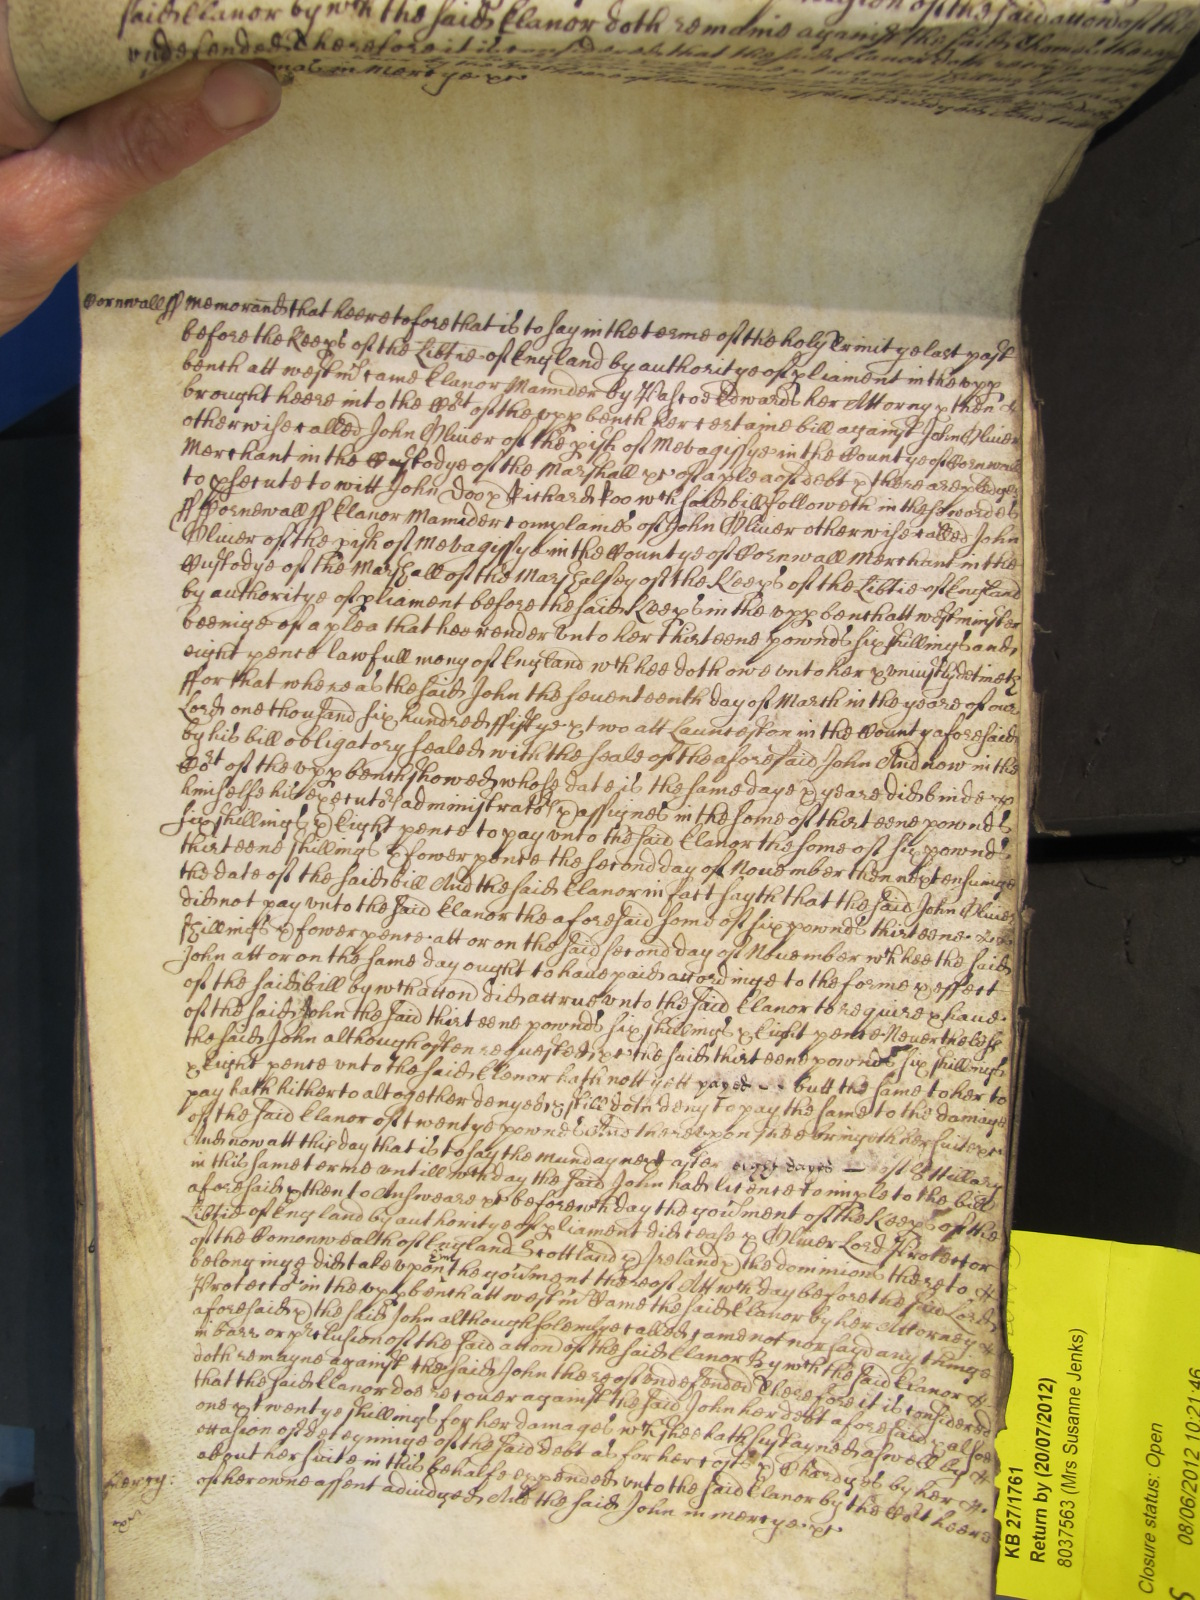 said Elanor by wch the said Elanor doth remaine against the said
undefended Therefore it is considered that the said Elanor doth
in mercye &c
Cornwall ss Memorand that heeretofore that is to say in the terme of the holy Trinitye last past
before the Keeps of the Libtie of England by authoritye of pliament in the upp
bench att westmr came Elanor Mamider by Pascoe Edwards her Attorny & then &
brought heere into the Cort of the upp bench her certaine bill against John Oliver
otherwise called John Oliver of the pish of Mevagissye in the Countye of Cornwall
Merchant in the Custodye of the Marshall &c of a plea of debt & there are pledges
to psecute to witt John Doo & Richard Roo wch said bill followeth in these wordes
ss Cornewall ss Elanor Mamider complaines of John Oliver otherwise called John
Oliver of the pish of Mevagissye in the Countye of Cornwall Merchant in the
Custodye of the Marshall of the Marshalsey of the Keeps of the Libtie of England
by authoritye of pliament before the said Keeps in the upp bench att westminster
beeinge of a plea that hee render unto her thirteene pownds six shillings and
eight pence lawfull mony of England wch hee doth owe unto her & uniustly detineth
ffor that whereas the said John the seventeenth day of March in the yeare of our
Lord one thousand six hundred ffiftye & two att Launceston in the County aforesaid
by his bill obligatory sealed with the seale of the aforesaid John And now in the
Cort of the upp bench showed whose date is the same daye & yeare did binde &
himselfe his executors administrators & assignes in the some of thirteene pownds
six shillings & Eight pence to pay unto the said Elanor the some of six pownds
thirteene shillings & fower pence the second day of November then next ensuinge
the date of the said bill And the said Elanor in fact sayth that the said John Oliver
did not pay unto the said Elanor the aforesaid some of six pownds thirteene
shillings & fower pence att or on the said second day of November wch hee the said
John att or on the same day ought to have paid accordinge to the forme & effect
of the said bill by wch accon did accrue unto the said Elanor to require & have
of the said John the said thirteene pownds six shillings & Eight pence Neverthelesse
the said John although often requested &c the said thirteene pownds six shillings
& Eight pence unto the said Elenor hath nott yett payed butt the same to her to
pay hath hitherto altogether denyed & still doth deny to pay the same to the damage
of the said Elanor of twentye pownds And thereupon shee bringeth her suite &c
And now att this day that is to say the munday next after eight dayes of St Hillary
in this same terme untill wch day the said John had licence to imple to the bill
aforesaid & then to Answeare &c before wch day the govment of the Keeps of the
Libtie of England by authoritye of pliament did cease & Oliver Lord Protector
of the Comonwealth of England Scottland & Ireland & the dominions thereto &
belonginge did take upon him the govment thereof Att wch day before the said Lord
Protector in the upp bench att westmr Came the said Elanor by her Attorney &
aforesaid & the said John although solemlye called came not nor sayd any thinge
in barr or pclusion of the said accon of the said Elanor By wch the said Elanor &
doth remayne against the said John thereof undefended Therefore it is considered
that the said Elanor doe recover against the said John her debt aforesaid & alsoe
one & twentye shillings for her damages wch shee hath sustayned aswell by &
occasion of deteyninge of the said debt as for her costs & Chardges by her &
about her suite in this behalfe expended unto the said Elanor by the Cort heere
of her owne assent adiudged And the said John in mercye &c
Mercy:
KB 27/1761
Return by (20/07/2012)
8037563 (Mrs Susanne Jenks)
Closure status: Open
08/06/2012 10:21:46